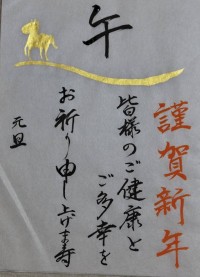 謹賀新年
午
皆様のご健康と
ご多幸を
お祈り申し上げま寿
元旦